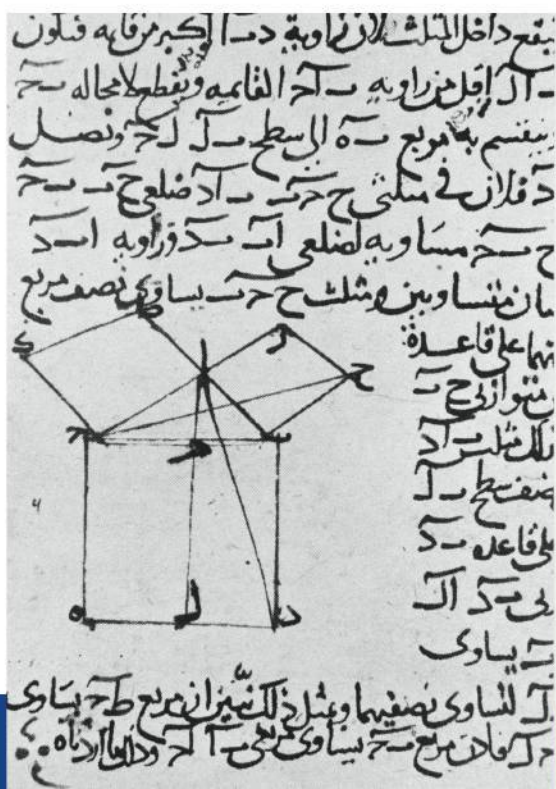 فيقع داخل المثلث لان زاوية د ب ا اكبر من قايمه فتكون
ب ا ل اقل من زاويه ب ا ح القائمه ويقطع لا محاله ب ح
فينقسم به مربع ب ه الى سطحي ب ل ل ح ونصل
ا د فلان في مثلثي ح ح ب ب ا د ضلعي ح ب ب ح
ح ب ح مساويه لضلعي ا ب ب د وزاويه ا ب د
متساويين ومثلث ح ح ب يساوي نصف مربع
على قاعدة
متوازيي ح ب
مثلث ب ا د
نصف سطح ب ل
على قاعده ب د
ب د ا ل
يساوى
ل لتساوى نصفيهما وبمثل ذلك نبين ان مربع ط ح يساوى
ح ل فاذن مربع ب ح يساوى مربعى ب ا ا ح وذلك ما اردناه